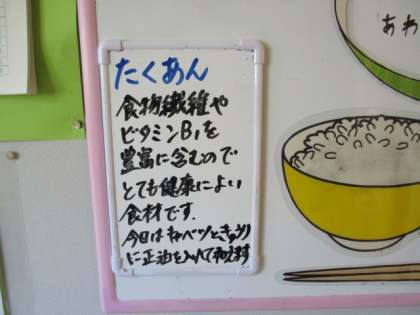 たくあん
食物繊維や
ビタミンB₁を
豊富に含むので
とても健康によい
食材です.
今日はキャベツときゅうり
に正油を入れて和えます
あわ